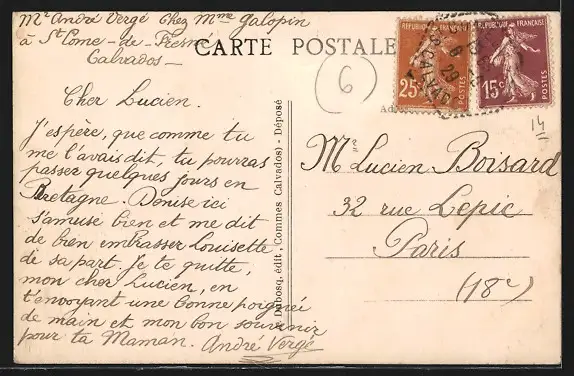 Mr André Vergé Chez Mme Galopin
à St Come-de-Fresné
Calvados-
CARTE POSTALE
6
REPUBLIQUE FRANÇAISE
25c
POSTES
REPUBLIQUE FRANÇAISE
15c
POSTES
8
29
CALVADOS
14
Cher Lucien.
J'espère, que comme tu
me l'avais dit, tu pourras
passer quelques jours en
Bretagne. Denise ici
s'amuse bien et me dit
de bien embrasser Louisette
de sa part. Je te quitte,
mon cher Lucien, en
t'envoyant une bonne poignée
de main et mon bon souvenir
pour ta Maman. André Vergé
Dubosq, édit. Commes (Calvados) - Déposé
Mr Lucien Boisard
32 rue Lepic
Paris
(18e)